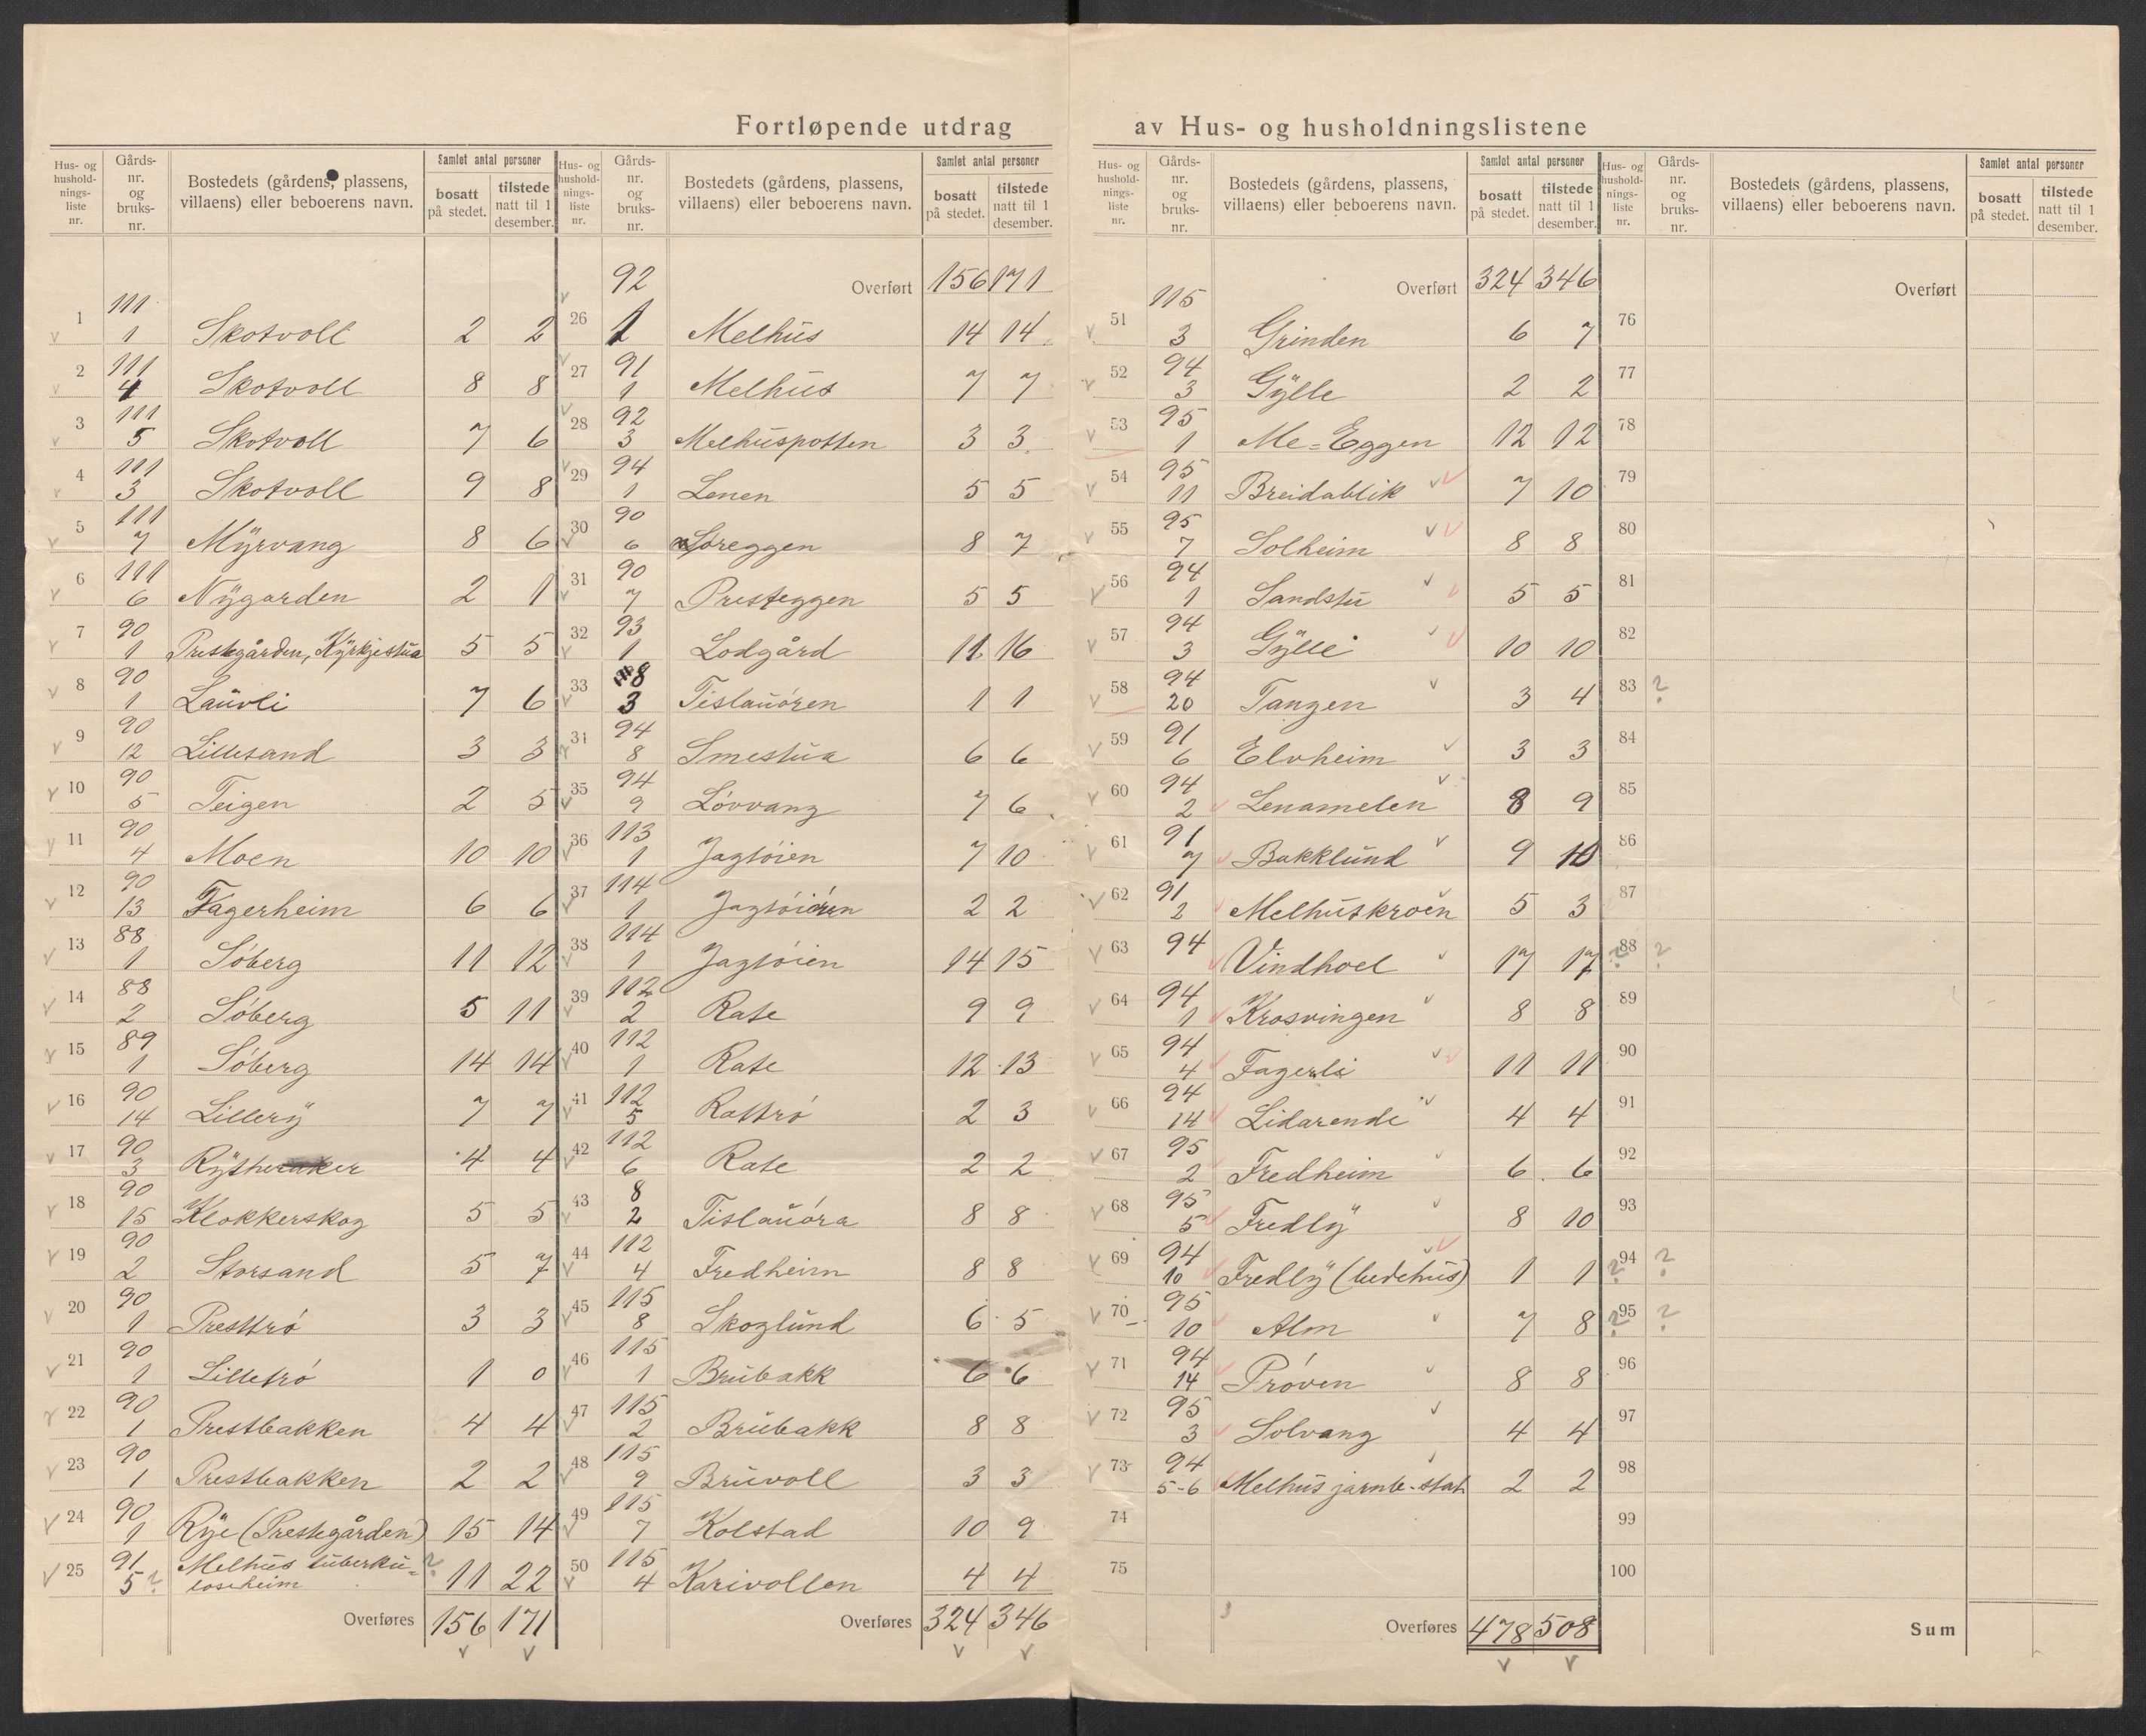 Fortløpende utdrag av Hus- og husholdningslistene
Hus- og hushold-nings-liste nr. | Gårds-nr. og bruks-nr. | Bostedets (gårdens, plassens, villaens) eller beboerens navn. | Samlet antal personer | bosatt på stedet. | tilstede natt til 1 desember.
1 | 111 1 | Skotvoll | 2 | 2
2 | 111 4 | Skotvoll | 8 | 8
3 | 111 5 | Skotvoll | 7 | 6
4 | 111 3 | Skotvoll | 9 | 8
5 | 111 7 | Mÿrvang | 8 | 6
6 | 111 6 | Nÿgarden | 2 | 1
7 | 90 1 | Prestegården, Kÿrkjestua | 5 | 5
8 | 90 1 | Lauvli | 7 | 6
9 | 90 12 | Lillesand | 3 | 3
10 | 90 5 | Teigen | 2 | 5
11 | 90 4 | Moen | 10 | 10
12 | 90 13 | Fagerheim | 6 | 6
13 | 88 1 | Søberg | 11 | 12
14 | 88 2 | Søberg | 5 | 11
15 | 89 1 | Søberg | 14 | 14
16 | 90 14 | Lillerÿ | 7 | 7
17 | 90 3 | 4 | 4
18 | 90 15 | Klokkerskog | 5 | 5
19 | 90 2 | Storsand | 5 | 7
20 | 90 1 | Presttrø | 3 | 3
21 | 90 1 | Lilletrø | 1 | 0
22 | 90 1 | Prestbakken | 4 | 4
23 | 90 1 | Prestbakken | 2 | 2
24 | 90 1 | Rÿe (Prestegården) | 15 | 14
25 | 91 5 ? | Melhus tuberku-
loseheim | ? | 11 | 22
Overføres | 156 | 171
Hus- og hushold-nings-liste nr. | Gårds-nr. og bruks-nr. | Bostedets (gårdens, plassens, villaens) eller beboerens navn. | Samlet antal personer | bosatt på stedet. | tilstede natt til 1 desember.
Overført | 156 | 171
26 | 92 1 | Melhus | 14 | 14
27 | 91 1 | Melhus | 7 | 7
28 | 92 3 | Melhuspotten | 3 | 3
29 | 94 1 | Lenen | 5 | 5
30 | 90 6 | Søreggen | 8 | 7
31 | 90 7 | Presteggen | 5 | 5
32 | 93 1 | Lodgård | 11 | 16
33 | 8 3 | Tislauøren | 1 | 1
34 | 94 8 | Smestua | 6 | 6
35 | 94 9 | Løvvang | 7 | 6
36 | 113 1 | Jagtøien | 7 | 10
37 | 114 1 | 2 | 2
38 | 114 1 | Jagtøien | 14 | 15
39 | 112 2 | Rate | 9 | 9
40 | 112 1 | Rate | 12 | 13
41 | 112 5 | Rattrø | 2 | 3
42 | 112 6 | Rate | 2 | 2
43 | 8 2 | Tislauøra | 8 | 8
44 | 112 4 | Fredheim | 8 | 8
45 | 115 8 | Skoglund | 6 | 5
46 | 115 1 | Brubakk | 6 | 6
47 | 115 2 | Brubakk | 8 | 8
48 | 115 9 | Bruvoll | 3 | 3
49 | 115 7 | Kolstad | 10 | 9
50 | 115 4 | Karivollen | 4 | 4
Overføres | 324 | 346
Hus- og hushold-nings-liste nr. | Gårds-nr. og bruks-nr. | Bostedets (gårdens, plassens, villaens) eller beboerens navn. | Samlet antal personer | bosatt på stedet. | tilstede natt til 1 desember.
Overført | 324 | 346
51 | 115 3 | Grinden | 6 | 7
52 | 94 3 | Gÿlle | 2 | 2
53 | 95 1 | Me-Eggen | 12 | 12
54 | 95 11 | Breidablik | 7 | 10
55 | 95 7 | Solheim | 8 | 8
56 | 94 1 | Sandstu | 5 | 5
57 | 94 3 | Gÿlle | 10 | 10
58 | 94 20 | Tangen | 3 | 4
59 | 91 6 | Elvheim | 3 | 3
60 | 94 2 | Lenamelen | 8 | 9
61 | 91 7 | Bakklund | 9 | 10
62 | 91 2 | Melhuskroen | 5 | 3
63 | 94 | Vindhoel | 17 | 17
64 | 94 1 | Krosvingen | 8 | 8
65 | 94 4 | Fagerli | 11 | 11
66 | 94 14 | Lidarende | 4 | 4
67 | 95 2 | Fredheim | 6 | 6
68 | 95 5 | Fredlÿ | 8 | 10
69 | 94 10 | Fredlÿ (bedehus) | 1 | 1
70 | 95 10 | Alm | 7 | 8
71 | 94 14 | Prøven | 8 | 8
72 | 95 3 | Solvang | 4 | 4
73 | 94 5-6 | Melhus jarnb.-stat. | 2 | 2
74
75
Overføres | 478 | 508
Hus- og hushold-nings-liste nr. | Gårds-nr. og bruks-nr. | Bostedets (gårdens, plassens, villaens) eller beboerens navn. | Samlet antal personer | bosatt på stedet. | tilstede natt til 1 desember.
Overført
76
77
78
79
80
81
82
83 ?
84
85
86
87
? 88 ?
89
90
91
92
93
? 94 ?
? 95 ?
96
97
98
99
100
Sum